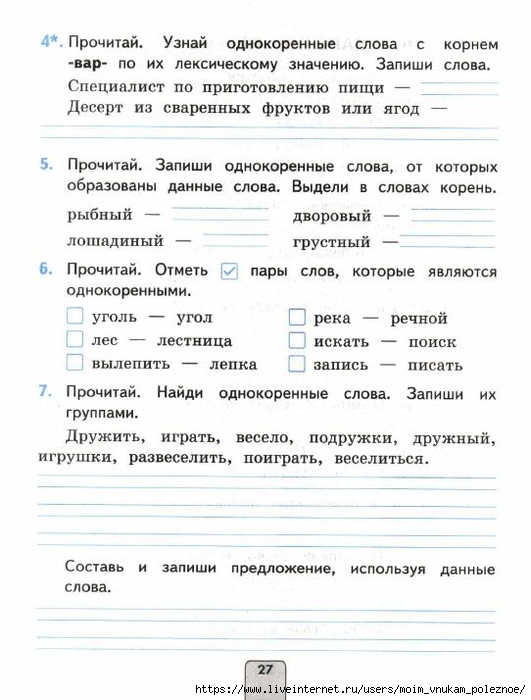 4*. Прочитай. Узнай однокоренные слова с корнем
-вар- по их лексическому значению. Запиши слова.
Специалист по приготовлению пищи —
Десерт из сваренных фруктов или ягод —
5. Прочитай. Запиши однокоренные слова, от которых
образованы данные слова. Выдели в словах корень.
рыбный — дворовый —
лошадиный — грустный —
6. Прочитай. Отметь ☑ пары слов, которые являются
однокоренными.
уголь — угол река — речной
лес — лестница искать — поиск
вылепить — лепка запись — писать
7. Прочитай. Найди однокоренные слова. Запиши их
группами.
Дружить, играть, весело, подружки, дружный,
игрушки, развеселить, поиграть, веселиться.
Составь и запиши предложение, используя данные
слова.
27
https://www.liveinternet.ru/users/moim_vnukam_poleznoe/